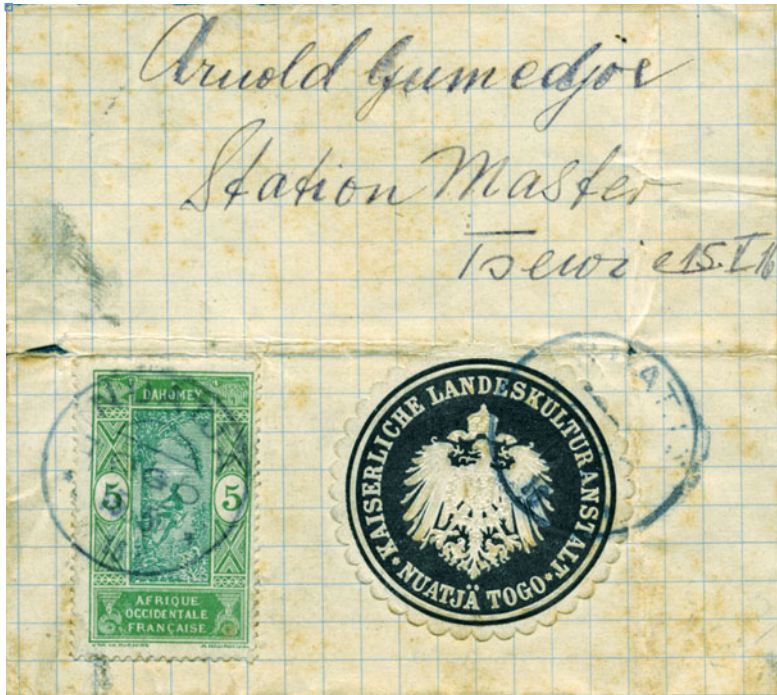 Arnold Gumedjoe
Station Master
Tsewie 15. V 16
DAHOMEY
5 5
AFRIQUE
OCCIDENTALE
FRANÇAISE
KAISERLICHE LANDESKULTURANSTALT
NUATJÄ TOGO